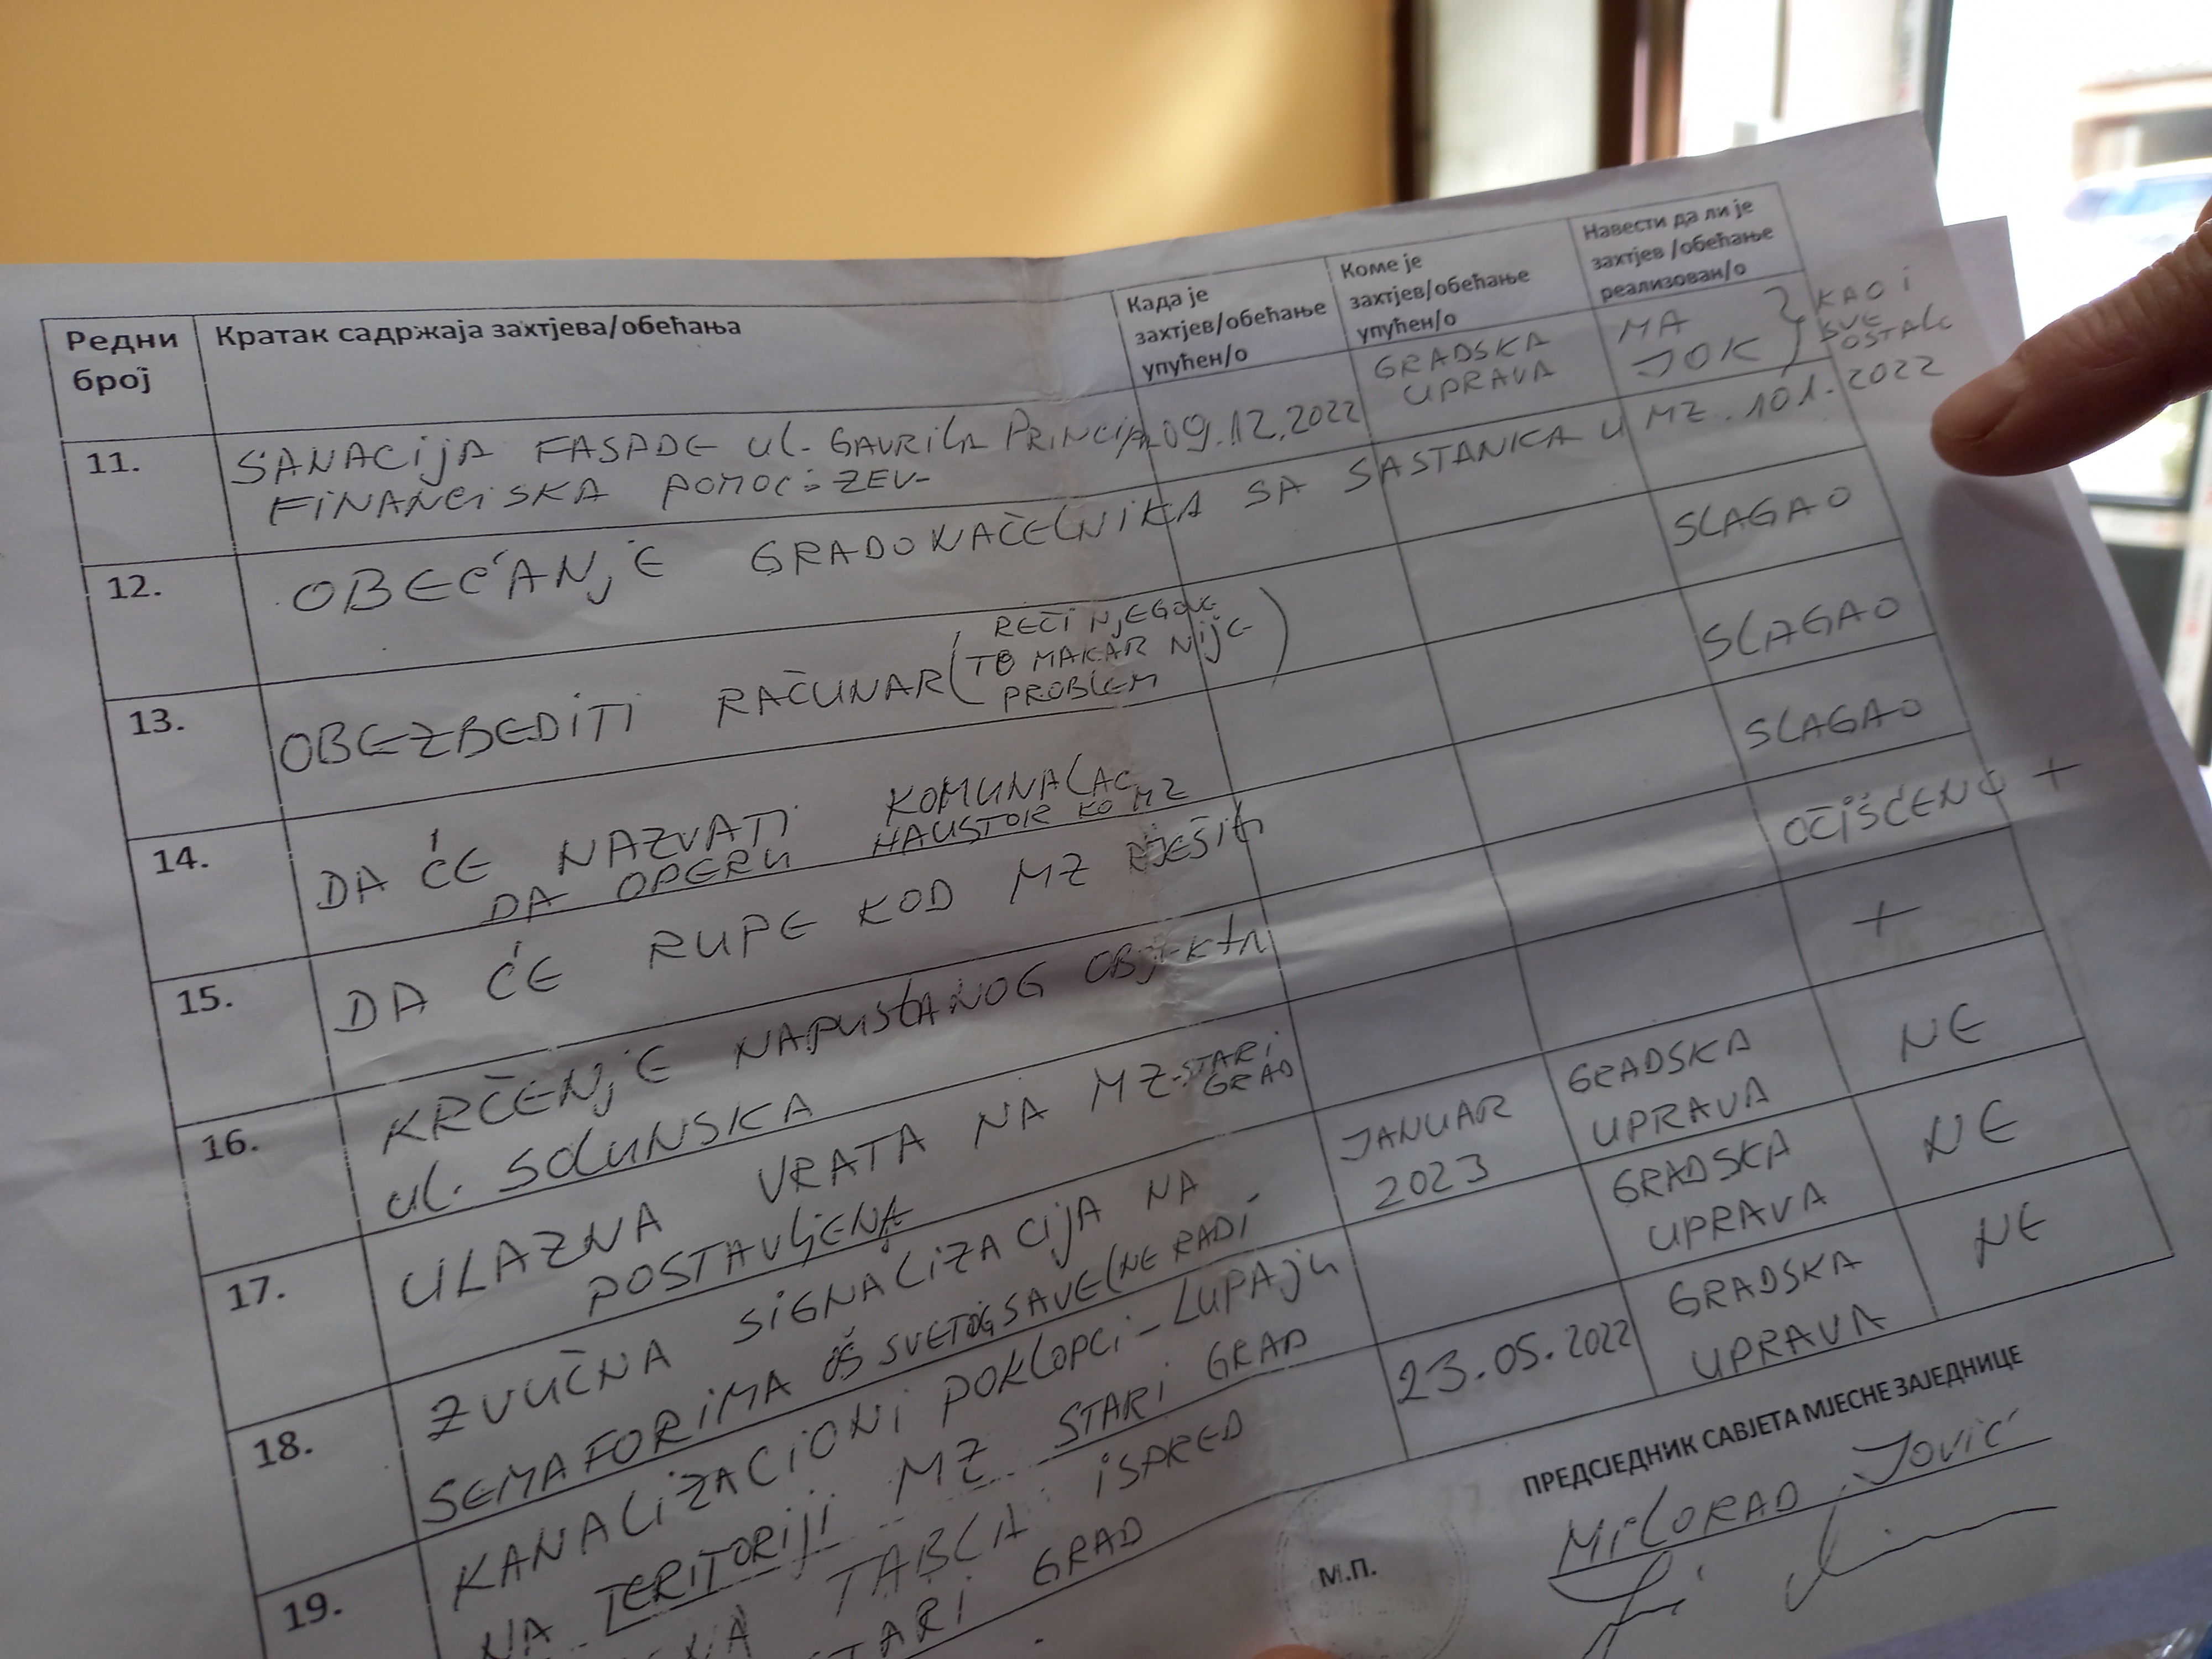 Редни
број
Кратак садржаја захтјева/обећања
Када је
захтјев/обећање
упућен/о
Коме је
захтјев/обећање
упућен/о
Навести да ли је
захтјев /обећање
реализован/о
11.
SANACIJA FASADE ul. GAVRILA PRINCIPA
FINANCISKA POMOĆ: ZEV-
09.12.2022
GRADSKA
UPRAVA
MA
JOK
KAO I
SVE
OSTALO
12.
OBEĆANJE GRADONAČELNIKA SA SASTANKA U MZ. 10 1. 2022
13.
OBEZBEDITI RAČUNAR (REČI NJEGOVE
TO MAKAR NIJE
PROBLEM)
SLAGAO
14.
DA ĆE NAZVATI KOMUNALAC
DA OPERU HAUSTOR KO MZ
SLAGAO
15.
DA ĆE RUPE KOD MZ RJEŠITI
SLAGAO
16.
KRČENJE NAPUSTANOG OBJEKTA
ul. SOLUNSKA
OČIŠĆENO +
17.
ULAZNA VRATA NA MZ-STARI
GRAD
POSTAVLJENA
+
18.
ZVUČNA SIGNALIZACIJA NA
SEMAFORIMA OŠ SVETOG SAVE (NE RADI
JANUAR
2023
GRADSKA
UPRAVA
NE
19.
KANALIZACIONI POKLOPCI - LUPAJU
NA TERITORIJI MZ STARI GRAD
GRADSKA
UPRAVA
NE
TABLA ISPRED
STARI GRAD
23.05.2022
GRADSKA
UPRAVA
NE
ПРЕДСЈЕДНИК САВЈЕТА МЈЕСНЕ ЗАЈЕДНИЦЕ
М.П.
MILORAD JOVIĆ